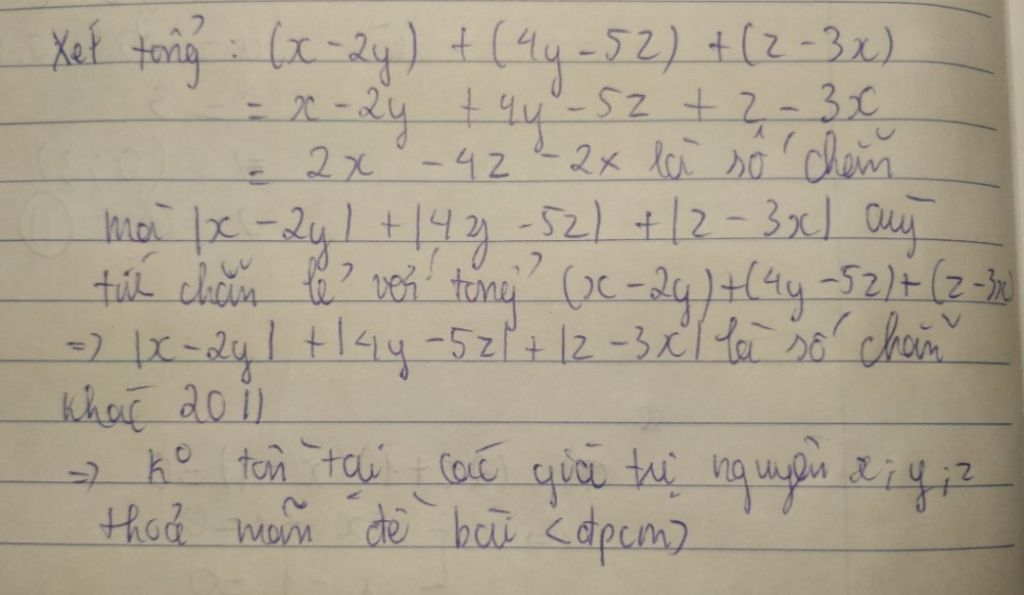 Xét tổng : (x - 2y) + (4y - 5z) + (z - 3x)
= x - 2y + 4y - 5z + z - 3x
= 2x - 4z - 2x là số chẵn
mà |x - 2y| + |4y - 5z| + |z - 3x| quỹ
tiế chẵn lẻ với tổng (x - 2y) + (4y - 5z) + (z - 3x)
=> |x - 2y| + |4y - 5z| + |z - 3x| là số chẵn
khác 2011
=> k⁰ tồn tại các giá trị nguyên x; y; z
thoả mãn đề bài <đpcm>